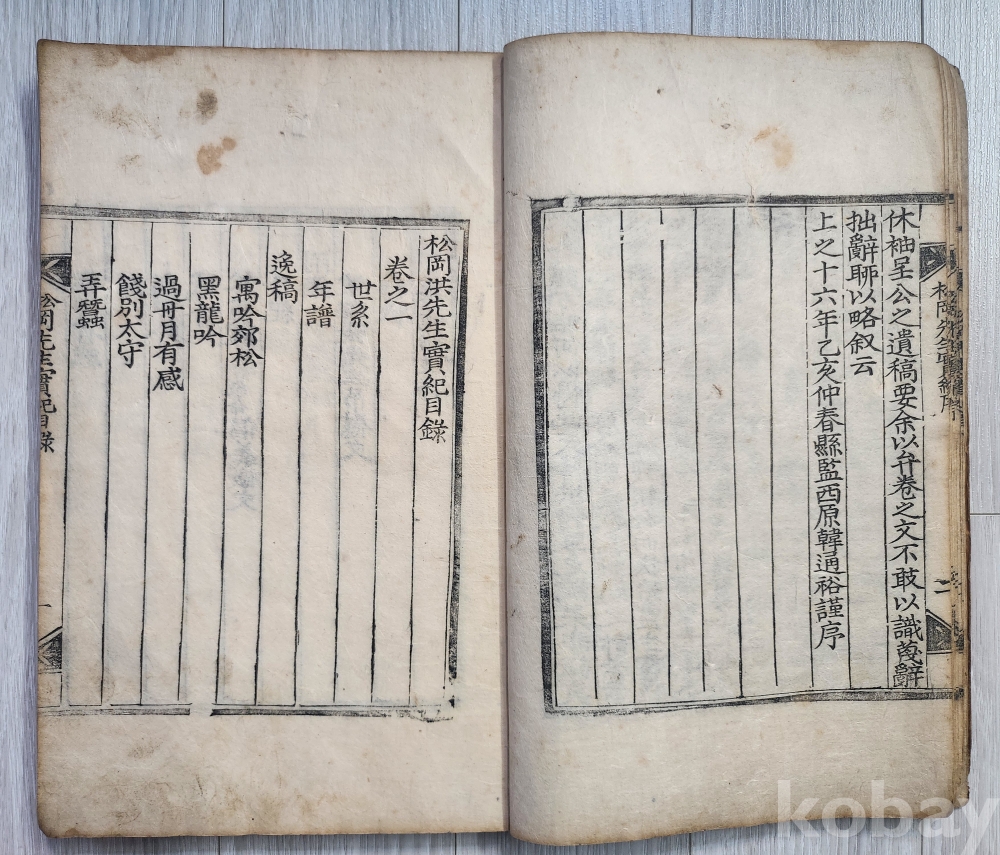 休袖呈公之遺稿要余以弁卷之文不敢以識蔑辭
拙辭聊以略叙云
上之十六年乙亥仲春縣監西原韓通裕謹序
松岡先生實紀序
二
松岡洪先生實紀目錄
卷之一
世系
年譜
逸稿
寓吟郊松
黑龍吟
過冊月有感
餞別太守
弄蠶
松岡先生實紀目錄
一
kobay